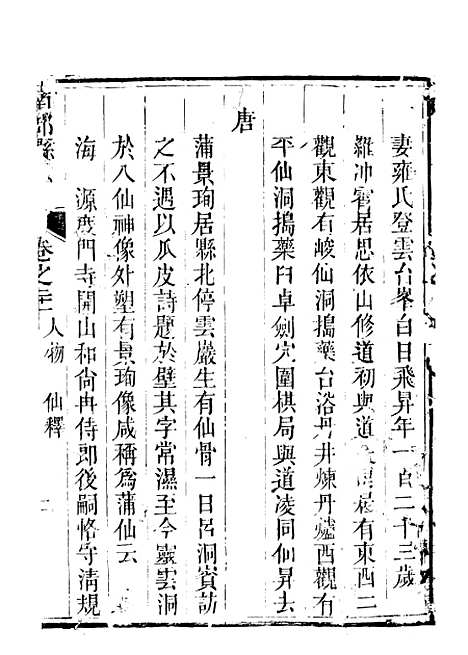 妻雍氏登雲台峯白日飛昇年一百二十三歲
羅冲霄居思依山修道初與道大同居有東西二
觀東觀有峻仙洞搗藥台浴丹井煉丹爐西觀有
平仙洞搗藥臼卓劍穴圍棋局與道凌同仙昇去
唐
蒲景珣居縣北停雲巖生有仙骨一日呂洞賓訪
之不遇以瓜皮詩題於壁其字常濕至今靈雲洞
於八仙神像外塑有景珣像咸稱爲蒲仙云
海 源度門寺開山和尚冉侍郎後嗣恪守清規
南部縣 卷之二十一 人物 仙釋 二